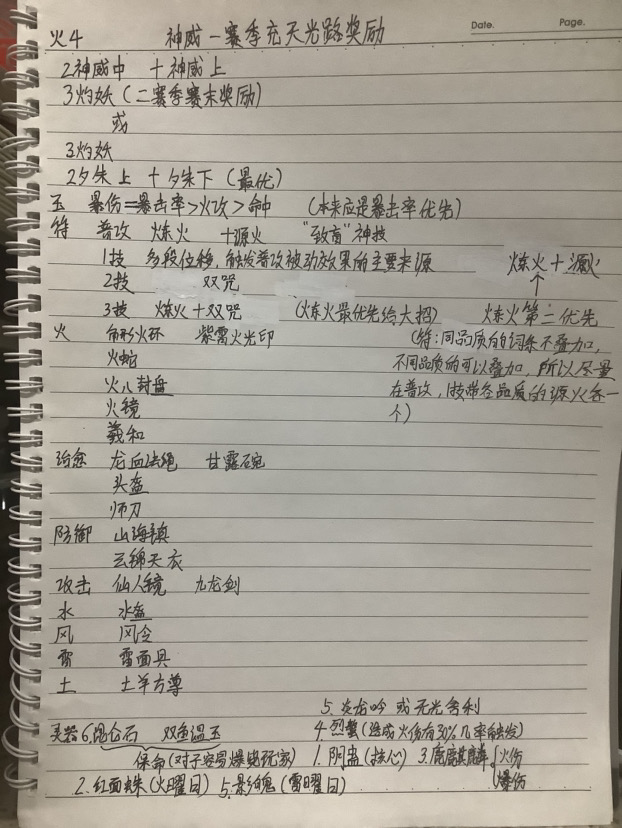 Date. Page.
火4 神威一赛季充天光路奖励
2神威中 十神威上
3灼妖(二赛季赛末奖励)
或
3灼妖
2夕朱上 十夕朱下(最优)
玉 暴伤=暴击率>火攻>命中 (本来应是暴击率优先)
符 普攻 炼火 +源火 "致盲"神技
1技 多段位移,触发普攻被动效果的主要来源 炼火+源火
2技 双咒 ↑
3技 炼火+双咒 (炼火最优先给大招) 炼火第二优先
火 角形火环 紫霄火光印 (符:同品质的词条不叠加,
火蛇 不同品质的可以叠加,所以尽量
火八封盘 在普攻,1技带各品质的源火各一
火镜 个)
羲和
治愈 龙血法绳 甘露碗
头盔
师刀
防御 山海镇
云锦天衣
攻击 仙人镜 九龙剑
水 水盔
风 风令
雷 雷面具
土 土羊方尊
5.炎龙吟 或 无光舍利
灵器6.昆仑石 双鱼温玉 4.烈 (造成火伤有30%几率触发)
保命(对于容易爆毙玩家) 1.阴蛊(核心) 3.麒麟{火伤
2.红面蛛(火曜日) 5.影魂(雷曜日) 爆伤